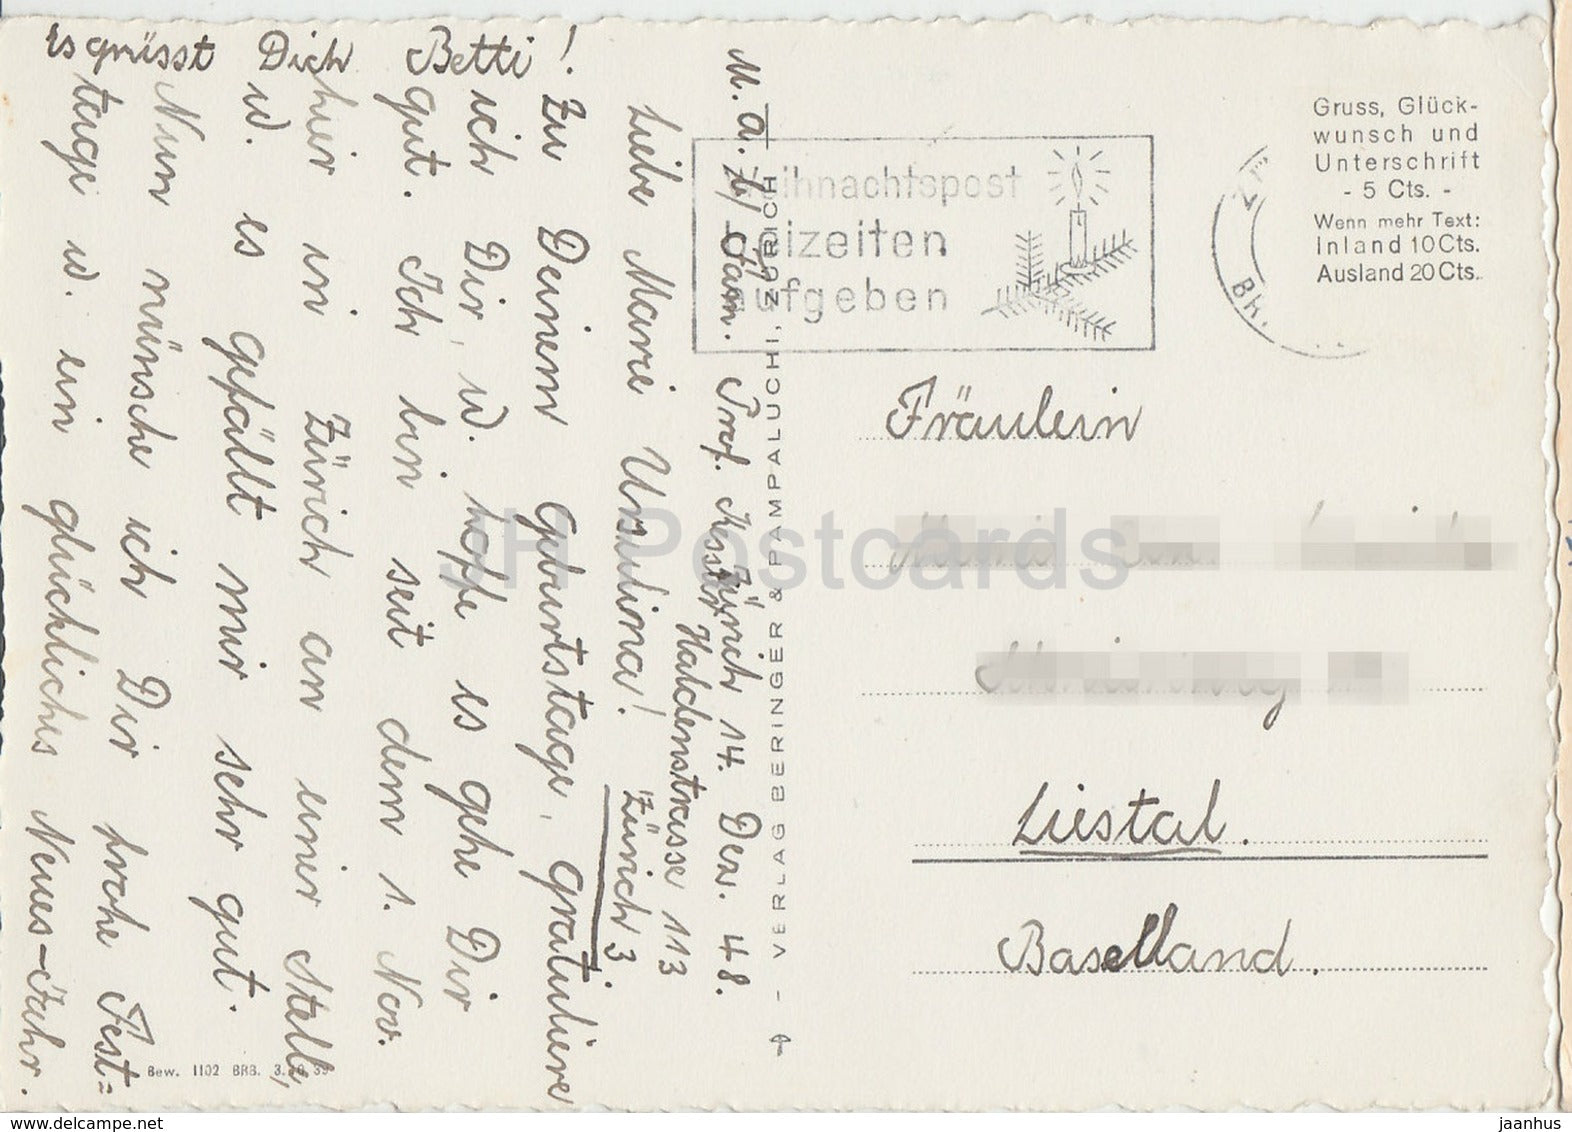 M. a. b/ Fam. Prof. Kesser Zürich 14. Dez. 48.
Haldenstrasse 113
Zürich 3
Liebe Marie Ursulina!
Zu Deinem Geburtstage, gratuliere
ich Dir, u. hoffe es gehe Dir
gut. Ich bin seit dem 1. Nov.
hier in Zürich an einer Stelle,
u. es gefällt mir sehr gut.
Nun wünsche ich Dir frohe Fest=
tage u. ein glückliches Neues-Jahr.
Es grüsst Dich Betti!
Bew. 1102 BRB. 3.10.39
VERLAG BERINGER & PAMPALUCHI, ZÜRICH
Weihnachtspost
beizeiten
aufgeben
Gruss, Glück-
wunsch und
Unterschrift
- 5 Cts. -
Wenn mehr Text:
Inland 10 Cts.
Ausland 20 Cts.
Fräulein
Liestal.
Baselland.
JH Postcards
www.delcampe.net
jaanhus